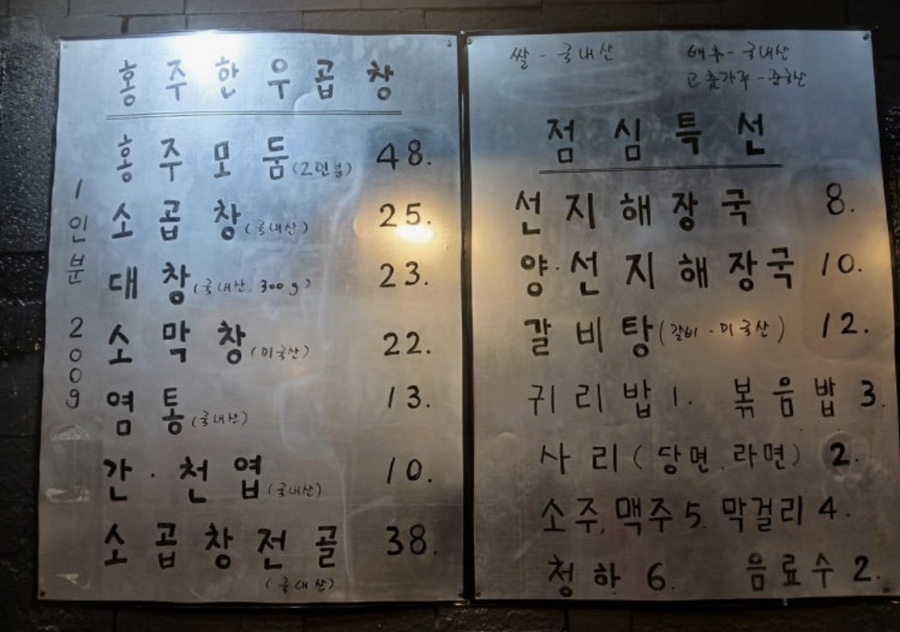 홍주한우곱창
홍주모둠(2인분) 48.
소곱창(국내산) 25.
대창(국내산. 300g) 23.
소막창(미국산) 22.
염통(국내산) 13.
간·천엽(국내산) 10.
소곱창전골 38.
(국내산)
1인분 200g
쌀 - 국내산 배추 - 국내산
고춧가루 - 중국산
점심특선
선지해장국 8.
양·선지해장국 10.
갈비탕(갈비 - 미국산) 12.
귀리밥 1. 볶음밥 3.
사리(당면. 라면) 2.
소주, 맥주 5. 막걸리 4.
청하 6. 음료수 2.